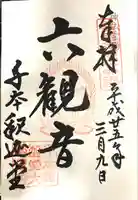 奉拝
平成廿五年
三月九日
六観音
千本釈迦堂